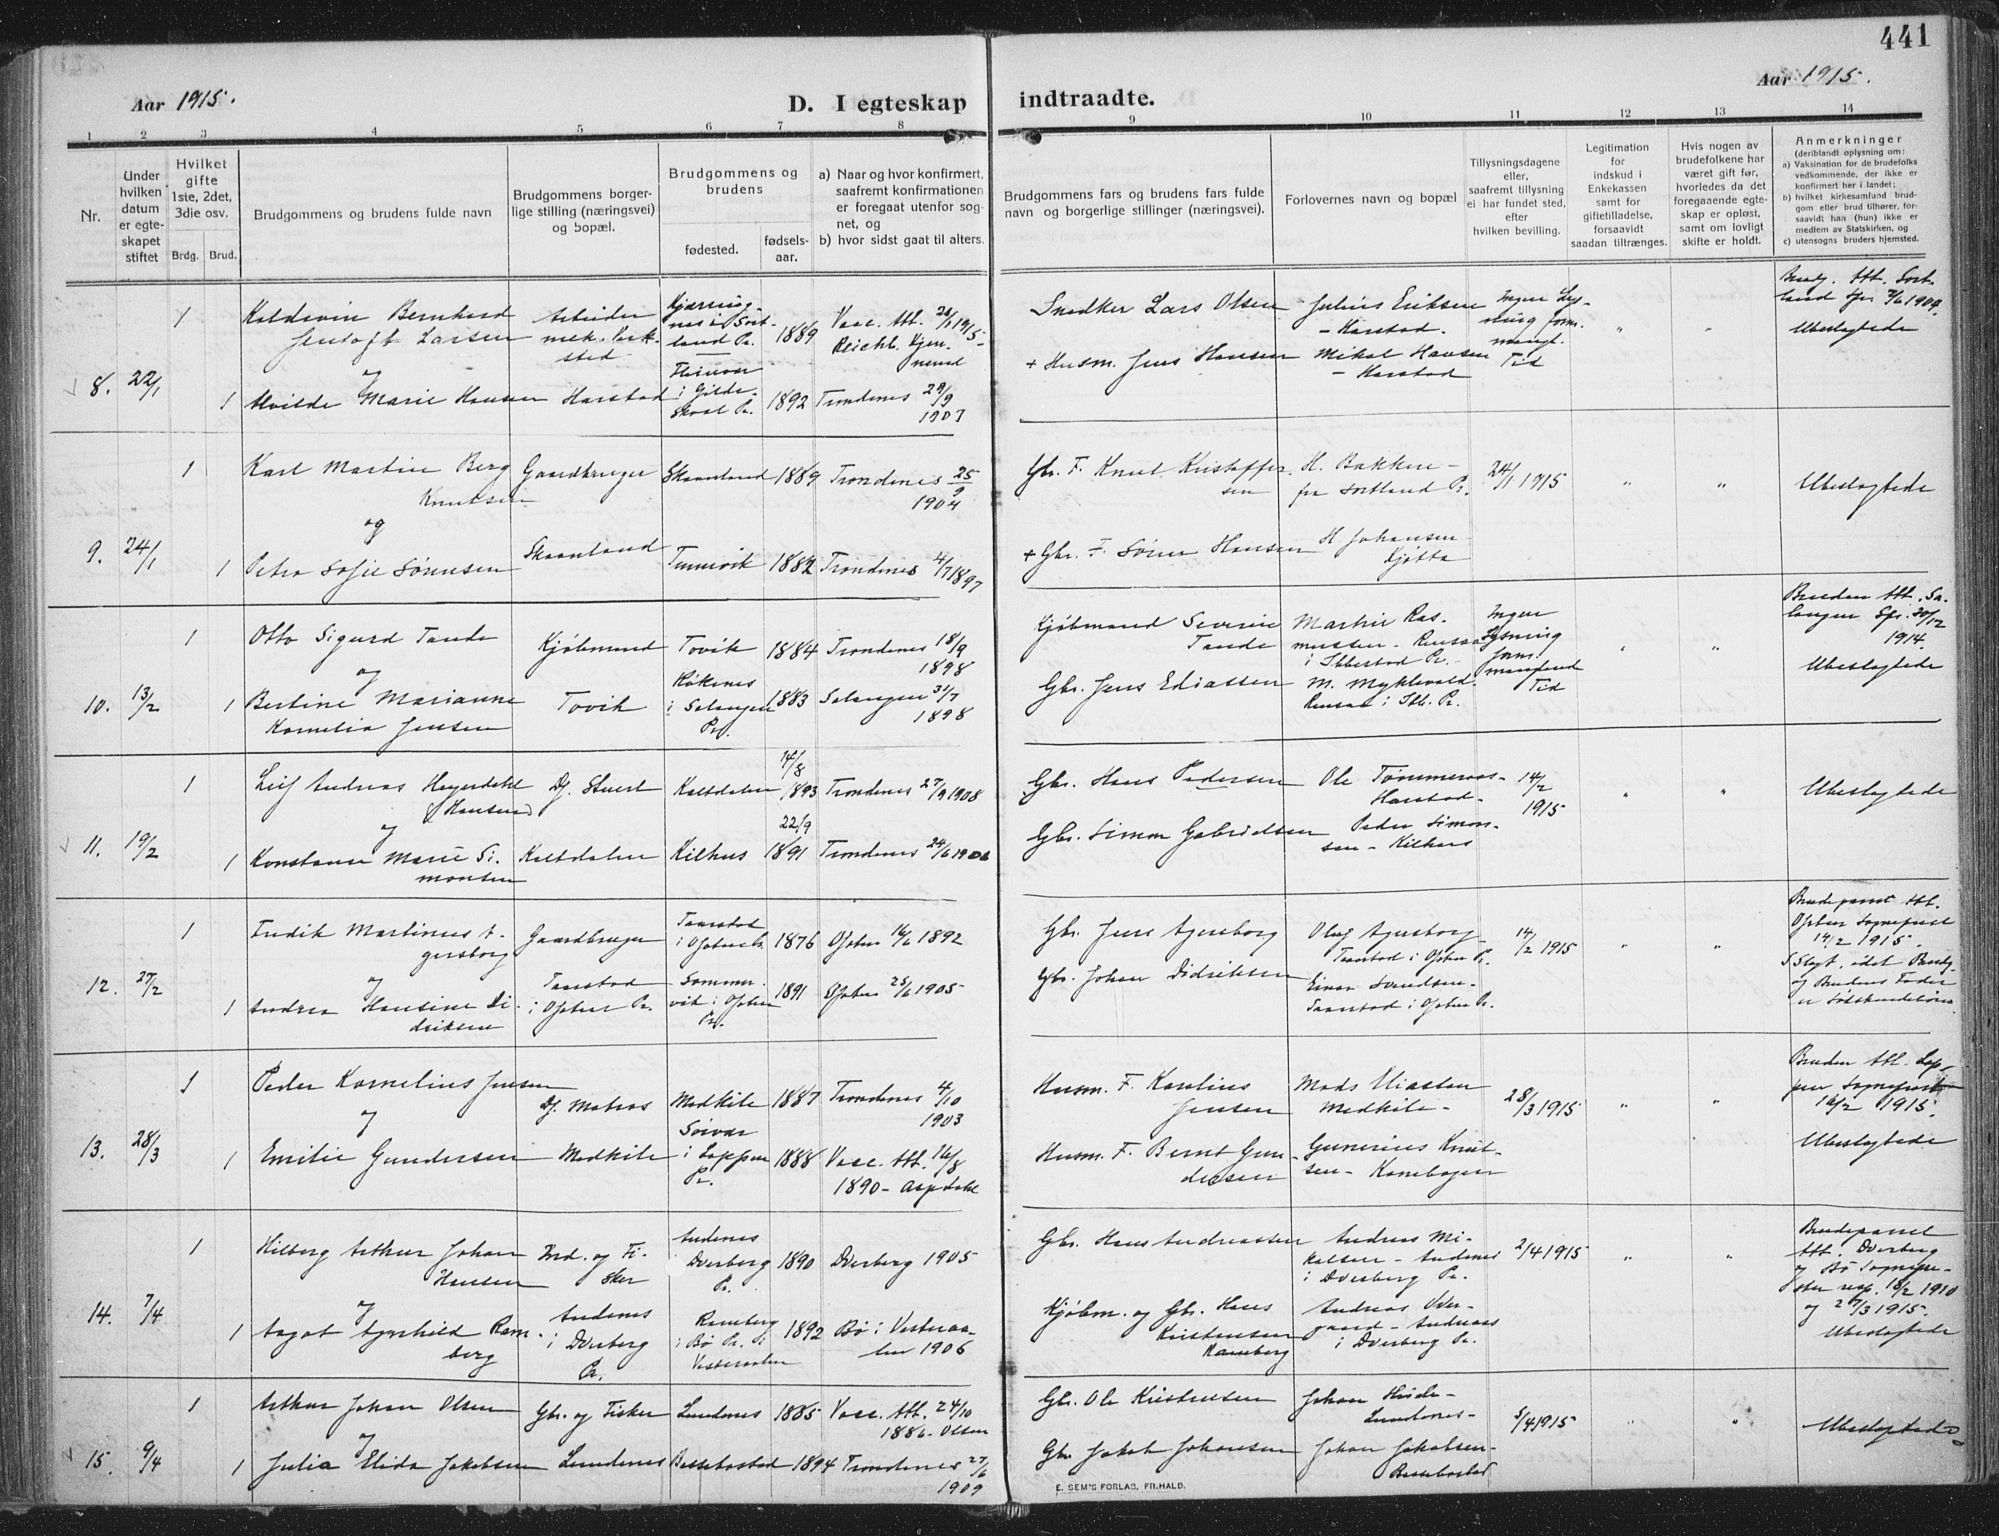 441
Aar 1915.
D. I egteskap indtraadte.
Aar 1915.
1 2 3 4 5 6 7 8 9 10 11 12 13 14
Nr.
Under hvilken datum er egteskapet stiftet
Hvilket gifte 1ste, 2det, 3die osv.
Brdg. Brud.
Brudgommens og brudens fulde navn
Brudgommens borgerlige stilling (næringsvei) og bopæl.
Brudgommens og brudens
fødested.
fødselsaar.
a) Naar og hvor konfirmert, saafremt konfirmationen er foregaat utenfor sognet, og
b) hvor sidst gaat til alters.
Brudgommens fars og brudens fars fulde navn og borgerlige stillinger (næringsvei).
Forlovernes navn og bopæl
Tillysningsdagene eller, saafremt tillysning ei har fundet sted, efter hvilken bevilling.
Legitimation for indskud i Enkekassen samt for giftetilladelse, forsaavidt saadan tiltrænges.
Hvis nogen av brudefolkene har været gift før, hvorledes da det foregaaende egteskap er opløst, samt om lovligt skifte er holdt.
Anmerkninger
(deriblandt oplysning om:
a) Vaksination for de brudefolks vedkommende, der ikke er konfirmert her i landet;
b) hvilket kirkesamfund brudgom eller brud tilhører, forsaavidt han (hun) ikke er medlem av Statskirken, og
c) utensogns bruders hjemsted.
8. 22/1
1
Bernhard
Larsen
Arbeider mek. Verksted
1889
Vacc. Att.
Snedker Lars Olsen
Julius Eriksen - Harstad.
Ubeslegtede
og
1
Marie Hansen
Harstad
1892
Trondenes 29/9 1907
+ Husm. Jens Hansen
Mikal Hansen - Harstad
9. 24/1
1
Karl Martin Berg Knutsen
Gaardbruger
Skaanland
1889
Trondenes 25/9 1904
Gbr. F. Knut Kristoffersen
H. Bakken - fra Sortland Pr.
24/1 1915
Ubeslegtede
og
1
Petra Sofie Sørensen
Skaanland
1882
Trondenes 4/7 1897
+ Gbr. F. Søren Hansen
H Johansen Kjøtta
10. 13/2
1
Otto Sigurd Tande
Kjøbmand
Tovik
1884
Trondenes 18/9 1898
Kjøbmand Severin Tande
Ingen lysning form. manglende Tid
Bruden Att. Salangen Spr. 30/12 1914.
Ubeslegtede
og
1
Bertine Marianne Kornelia Jensen
Tovik
Røkenes i Salangen Pr.
1883
Salangen 31/7 1898
Gbr. Jens Ediassen
11. 19/2
1
Leif Andreas Heyerdahl (Hansen)
Dj. Stuert
Kaltdalen
14/8 1893
Trondenes 27/9 1908
Gbr. Hans Pedersen
Ole Tømmeraas - Harstad -
14/2 1915
Ubeslegtede
og
1
Konstanse Marie Simonsen
Kaltdalen
Kilhus
22/9 1891
Trondenes
Gbr. Simon Gabrielsen
Peder Simonsen - Kilhus
12. 27/2
1
Gaardbruger
1876
Ofoten 16/6 1892
14/2 1915
Brudeparret Att. Ofoten Sogneprest 14/2 1915.
og
1
Andrea Hansine Didriksen
Taarstad i Ofoten Pr.
Sommervik i Ofoten Pr.
1891
Ofoten 25/6 1905
Gbr. Johan Didriksen
Einar Svendsen - Taarstad i Ofoten Pr.
13. 28/3
1
Peder Kornelius Jensen
Dj. Matros
Medkile
1887
Trondenes 4/10 1903
Husm. F. Karolius Jensen
Mads Eliassen Medkile -
28/3 1915
Bruden Att. Loppen Sogneprest 16/2 1915.
Ubeslegtede
og
1
Emilie Gundersen
Medkile
i Loppen Pr.
1888
Vacc. Att. 16/8 1890 - Aspdahl
Husm. F. Bernt Gundersen
Gunerius Knutsen - Kanebogen
14. 7/4
1
Hilberg Arthur Johan Hansen
Ind. og Fisker
Andenes Dverberg Pr.
1890
Dverberg 1905
Gbr. Hans Andreassen
Andreas Mikalsen - Andenes i Dverberg Pr.
2/4 1915
Brudeparret Att. Dverberg og Bø Sogneprester resp. 18/2 1910 og 27/3 1915.
Ubeslegtede
og
1
Aagot Ramberg
Andenes i Dverberg Pr.
Ramberg i Bø Pr. i Vesteraalen
1892
Bø i Vesteraalen 1906
Kjøbm. og Gbr. Hans Kristensen Ramberg
15. 9/4
1
Arthur Johan Olsen
Gbr. og Fisker
Lundenes
1885
Vacc. Att. 24/10 1886. Olsen
Gbr. Ole Kristensen
Johan
Lundenes -
5/4 1915
Ubeslegtede
og
1
Julia Elida Jakobsen
Lundenes
Bessebostad
1894
Trondenes 27/6 1909
Gbr. Jakob Johansen
Johan Jakobsen - Bessebostad
E. SEM'S FORLAG, FR.HALD.